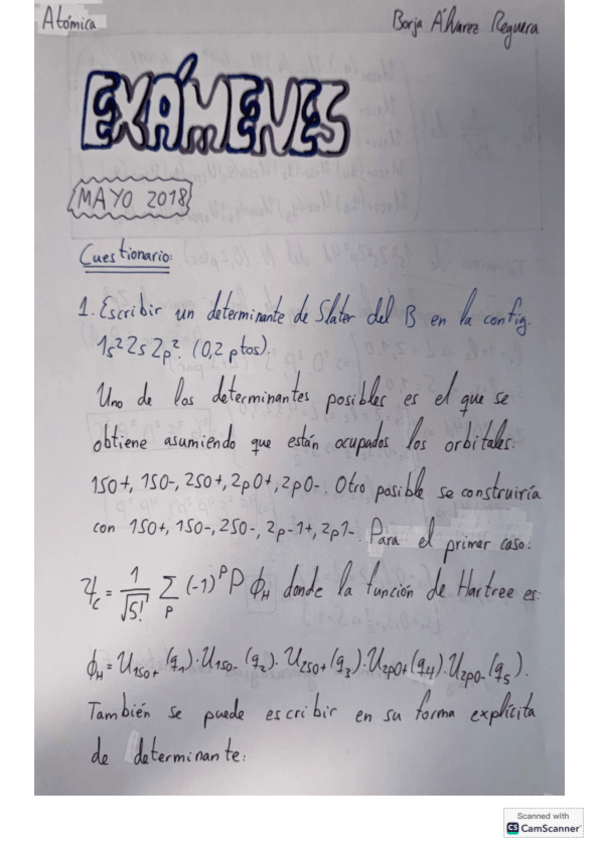 Atómica
Borja Álvarez Reguera
EXÁMENES
MAYO 2018
Cuestionario:
1. Escribir un determinante de Slater del B en la config.
1s² 2s 2p². (0,2 ptos).
Uno de los determinantes posibles es el que se
obtiene asumiendo que están ocupados los orbitales:
1s0+, 1s0-, 2s0+, 2p0+, 2p0-. Otro posible se construiría
con 1s0+, 1s0-, 2s0-, 2p-1+, 2p1-. Para el primer caso:
Ψc = 1/√5! Σ_P (-1)^P P ϕH donde la función de Hartree es:
ϕH = U1s0+(q1)·U1s0-(q2)·U2s0+(q3)·U2p0+(q4)·U2p0-(q5).
También se puede escribir en su forma explícita
de determinante:
Scanned with
CS CamScanner